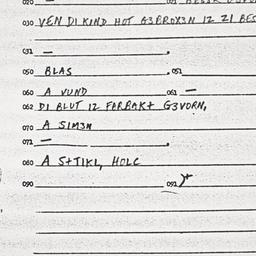 030 VEN DI KIND HOT G3BROX3N IZ ZI BES
031 —
050 BLAS 051
060 A VUND 061 —
062 DI BLUT IZ FARBAKT G3VORN,
070 A SIM3N
072 —
080 A S+TIKL, HOLC
090 092 Y+